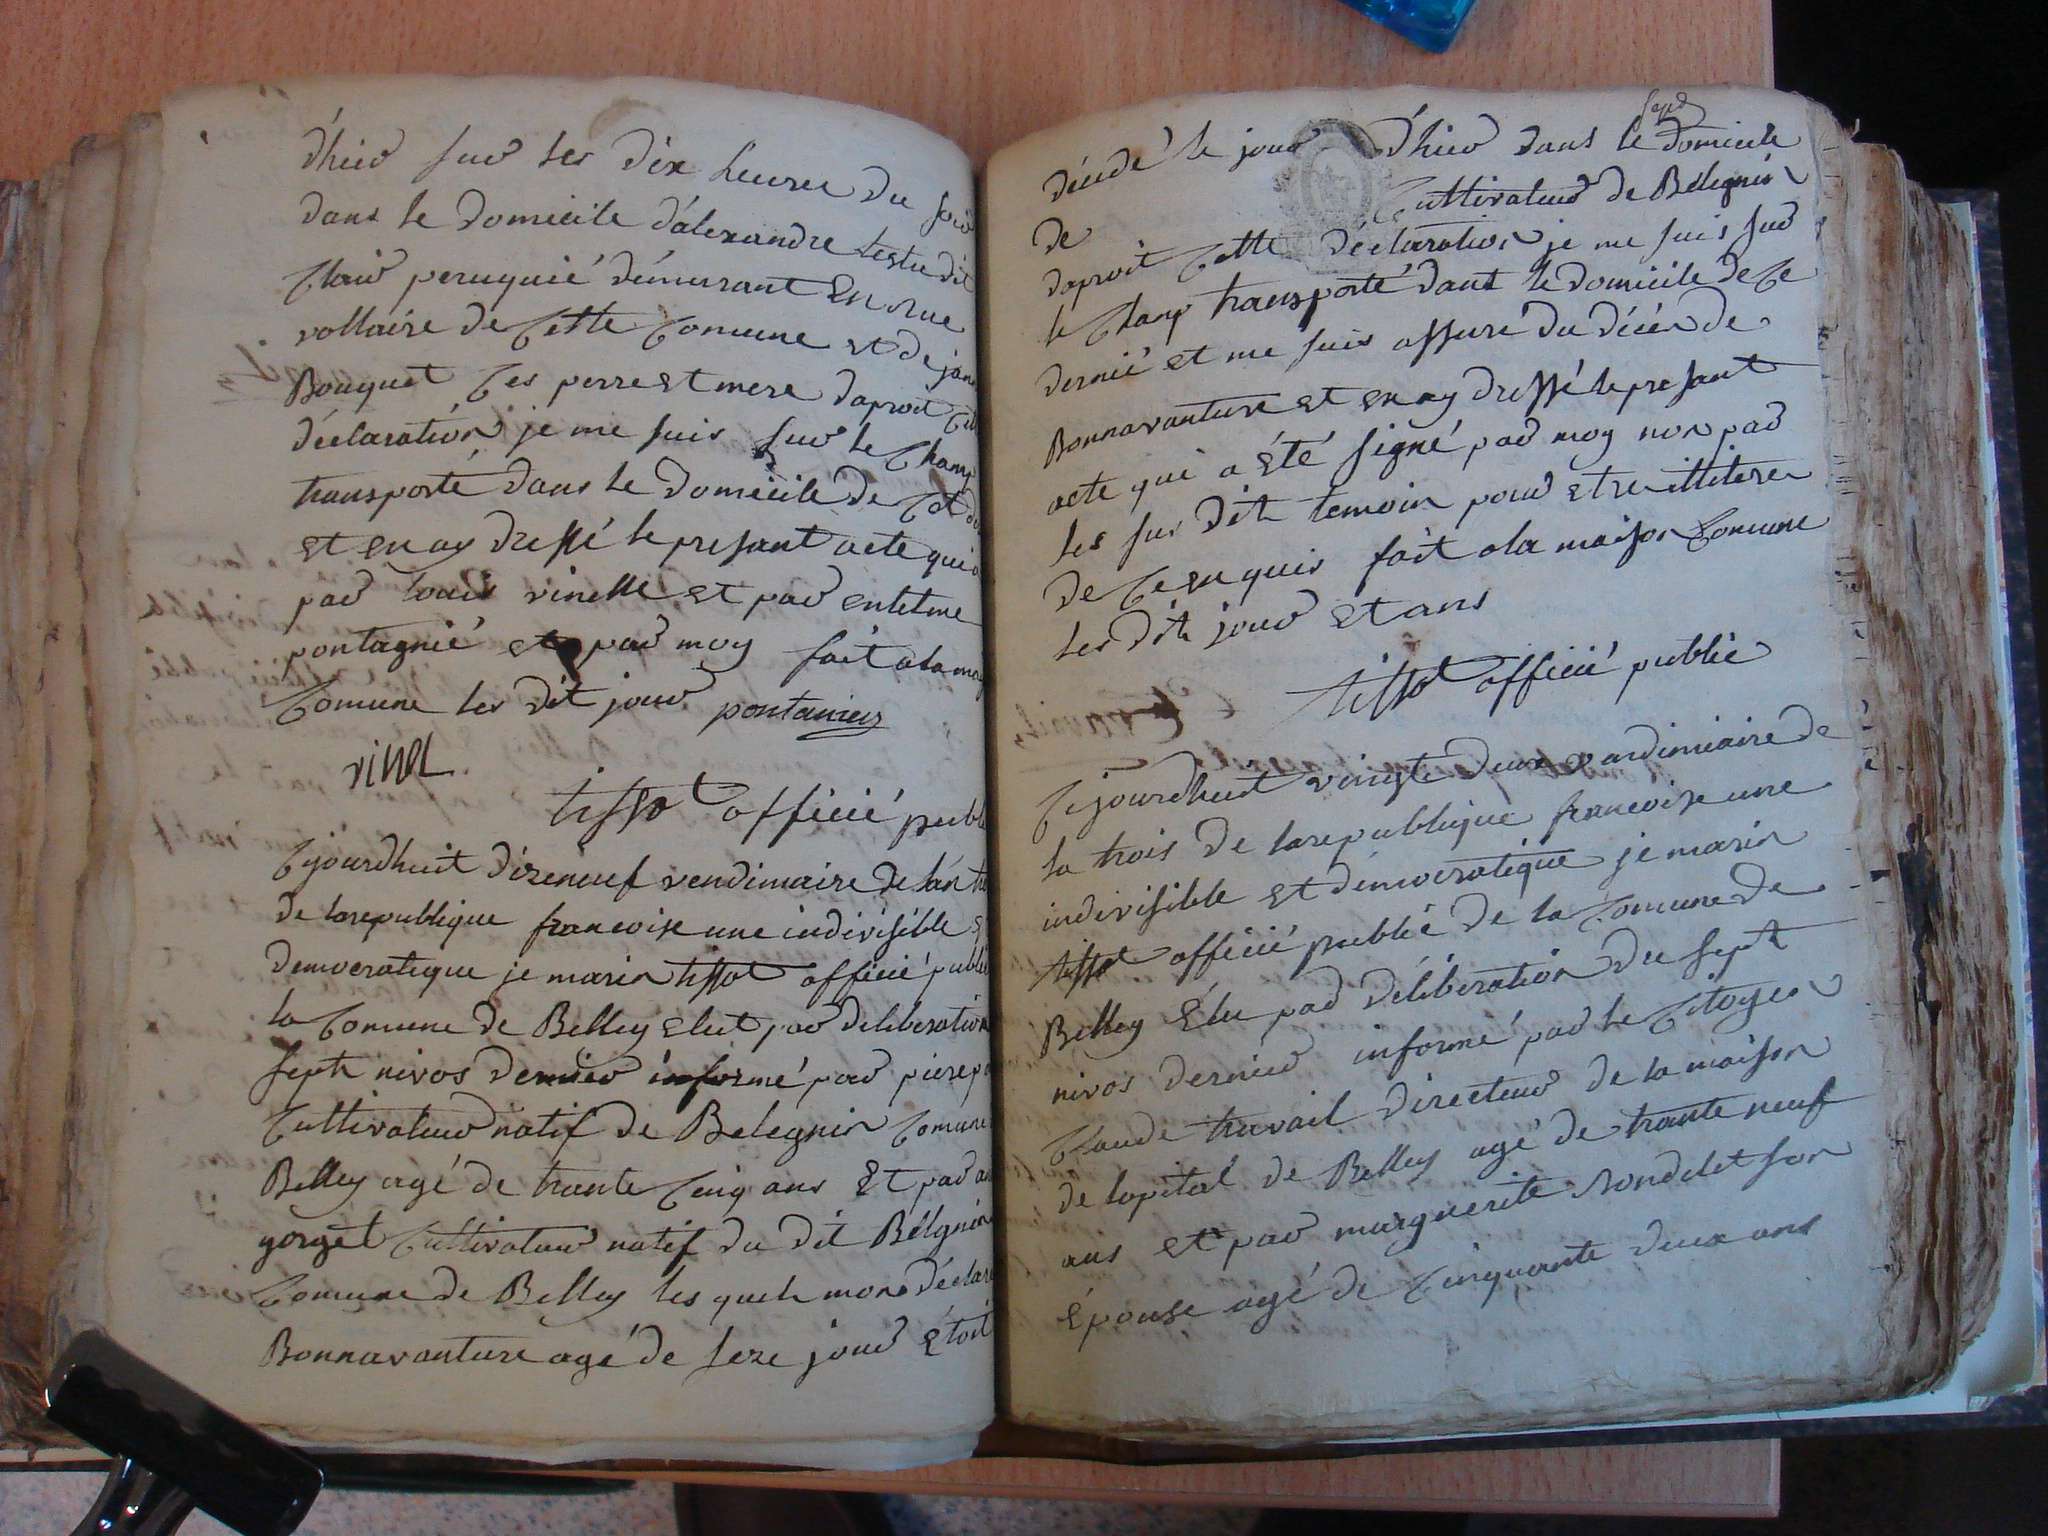 d'hier sur les dix heures du soir
dans le domicile d'alexandre testu dit
Clair peruquié démurant En rue
voltaire de Cette Comune et de jan
Bouquet Ces perre et mere daproit
déclaration je me suis sur le Champ
transporté dans le domicile de
et en ay dressé le presant acte qui
par louis vinelle et par
pontagnié et par moy fait a la
Comune les dit jour pontanier
vinel
tissot officié public
Cejourdhuit dizeneuf vendimaire de l'an
de la republique francoise une indivisible
democratique je marin tissot officié public
la Comune de Belley elut par deliberation
sept nivos dernier informé par piere
Cultivateur natif de Belegnin Comune
Belley agé de trante Cinq ans Et par
gorget Cultivateur natif du dit Bélgnin
Comune de Belley les quels mons déclaré
Bonnavanture agé de seze jour Étoit
sepd
décédé le jour d'hier dans le domicile
de Cultivateur de Bélegnin
daproit Cette déclaration je me suis sur
le Champ transporté dans le domicile de Ce
dernié et me suis assuré du décés de
Bonnavanture et en ay dressé le presant
acte qui a été signé par moy non par
les sus dit temoin pour etre illiterer
de Ce enquis fait a la maison Comune
les dit jour et ans
tissot officié public
Cejourdhuit vingte deux vandimiaire de
la trois de la republique francoise une
indivisible et démocratique je marin
tissot officié public de la Comune de
Belley Élu par déliberation du sept
nivos dernier informé par le Citoyen
Claude travail directeur de la maison
de lopital de Belley agé de trante neuf
ans et par marguerite Rondelet son
Épouse agé de Cinquante deux ans